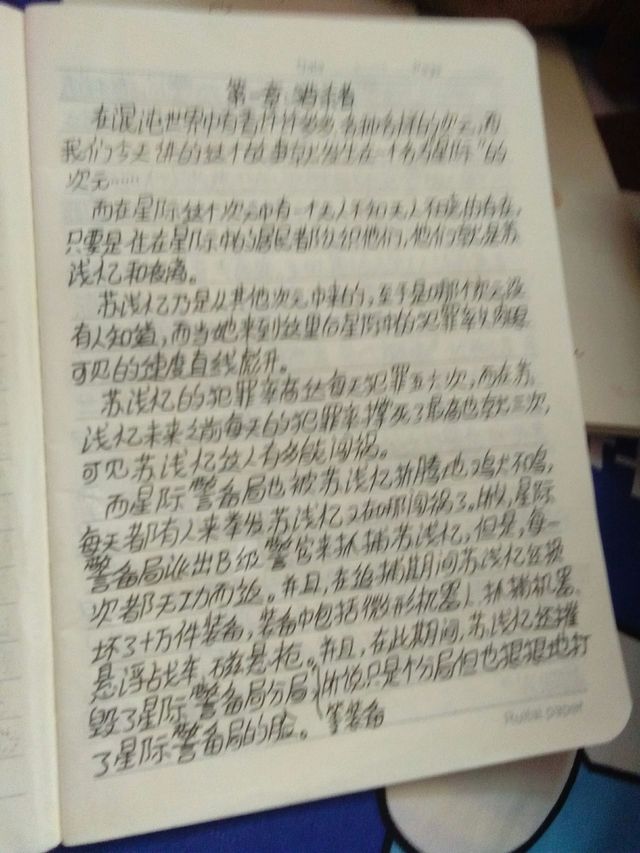 Date Page
第一章 始末者
在混沌世界中有着许许多多,各种各样的次元,而
我们今天讲的这个故事就发生在一个名为"星际"的
次元……
而在星际这个次元中有一个无人不知无人不晓的存在,
只要是住在星际中的居民都认识他们,他们就是苏
浅忆和夜离。
苏浅忆乃是从其他次元中来的,至于是哪个次元没
有人知道,而当她来到这里后星际中的犯罪率以肉眼
可见的速度直线飙升。
苏浅忆的犯罪率高达每天犯罪五十次,而在苏
浅忆未来之前每天的犯罪率撑死了最高也就三次,
可见苏浅忆这人有多能闯祸。
而星际警备局也被苏浅忆折腾地鸡犬不鸣,
每天都有人来举发苏浅忆又在哪闯祸了。所以,星际
警备局派出B级警官来抓捕苏浅忆,但是,每一
次都无功而返。并且,在追捕期间苏浅忆还损
坏了十万件装备,装备中包括微形机器人,抓捕机器,
悬浮战车,磁悬枪。并且,在此期间,苏浅忆还摧
毁了星际警备局分局,所说只是个分局但也狠狠地打
了星际警备局的脸。 等装备